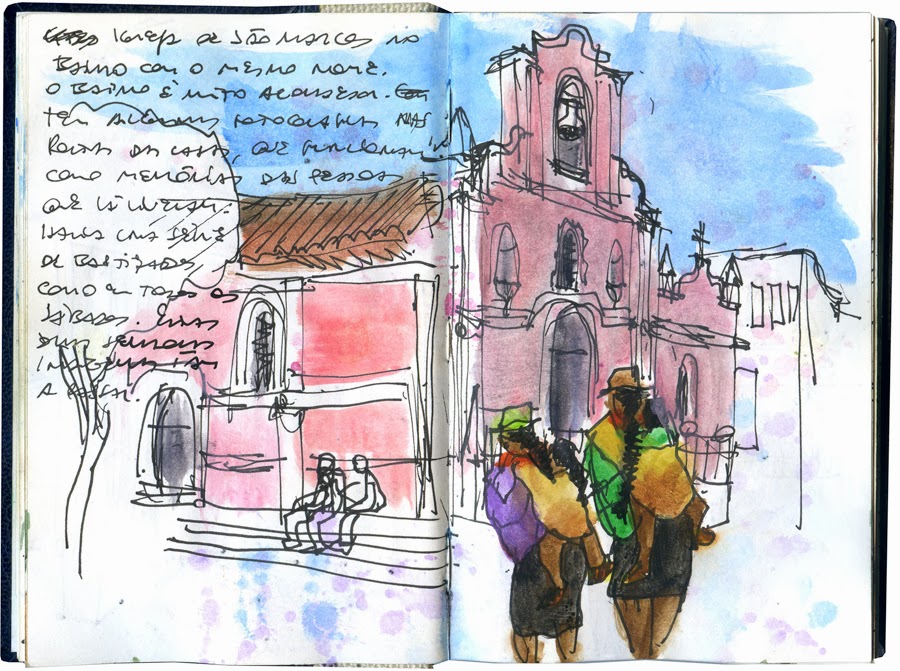 IGREJA DE SÃO MARCOS NO
BAIRRO COM O MESMO NOME.
O BAIRRO É MUITO ACOLHEDOR.
TEM ALGUMAS FOTOGRAFIAS NAS
PORTAS DAS CASAS, QUE FUNCIONAM
COMO MEMÓRIAS DAS PESSOAS
QUE LÁ VIVERAM.
HAVIA UMA SÉRIE
DE BATIZADOS
COMO EM TODOS OS
SÁBADOS. ESTAS
DUAS SENHORAS
IAM
A PASSAR.